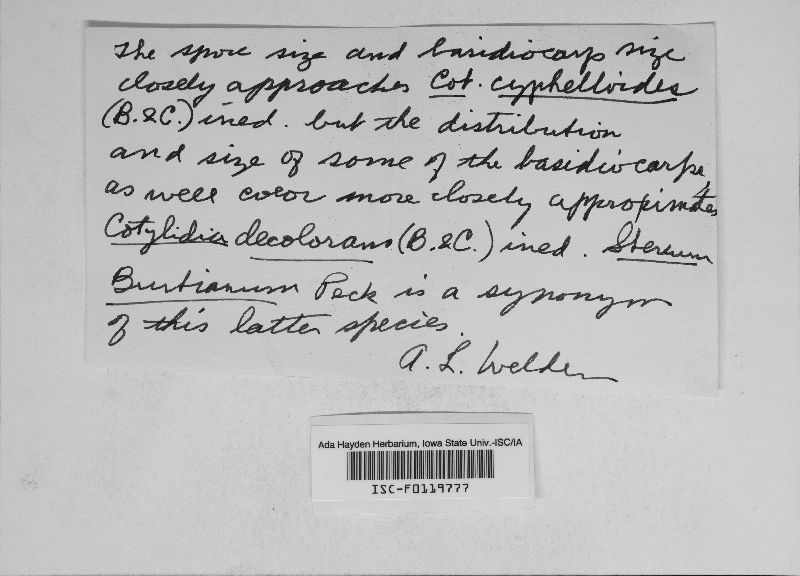 The spore size and basidiocarp size
closely approaches Cot. cyphelloides
(B.&C.) ined. but the distribution
and size of some of the basidiocarps,
as well color more closely approximates
Cotylidia decolorans (B.&C.) ined. Stereum
Burtianum Peck is a synonym
of this latter species.
A. L. Welden
Ada Hayden Herbarium, Iowa State Univ.-ISC/IA
ISC-F0119777